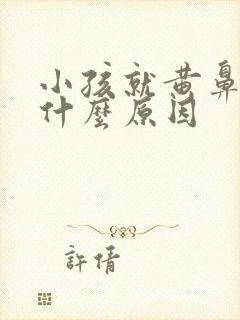 小孩就黄鼻
什麼原因
許倩